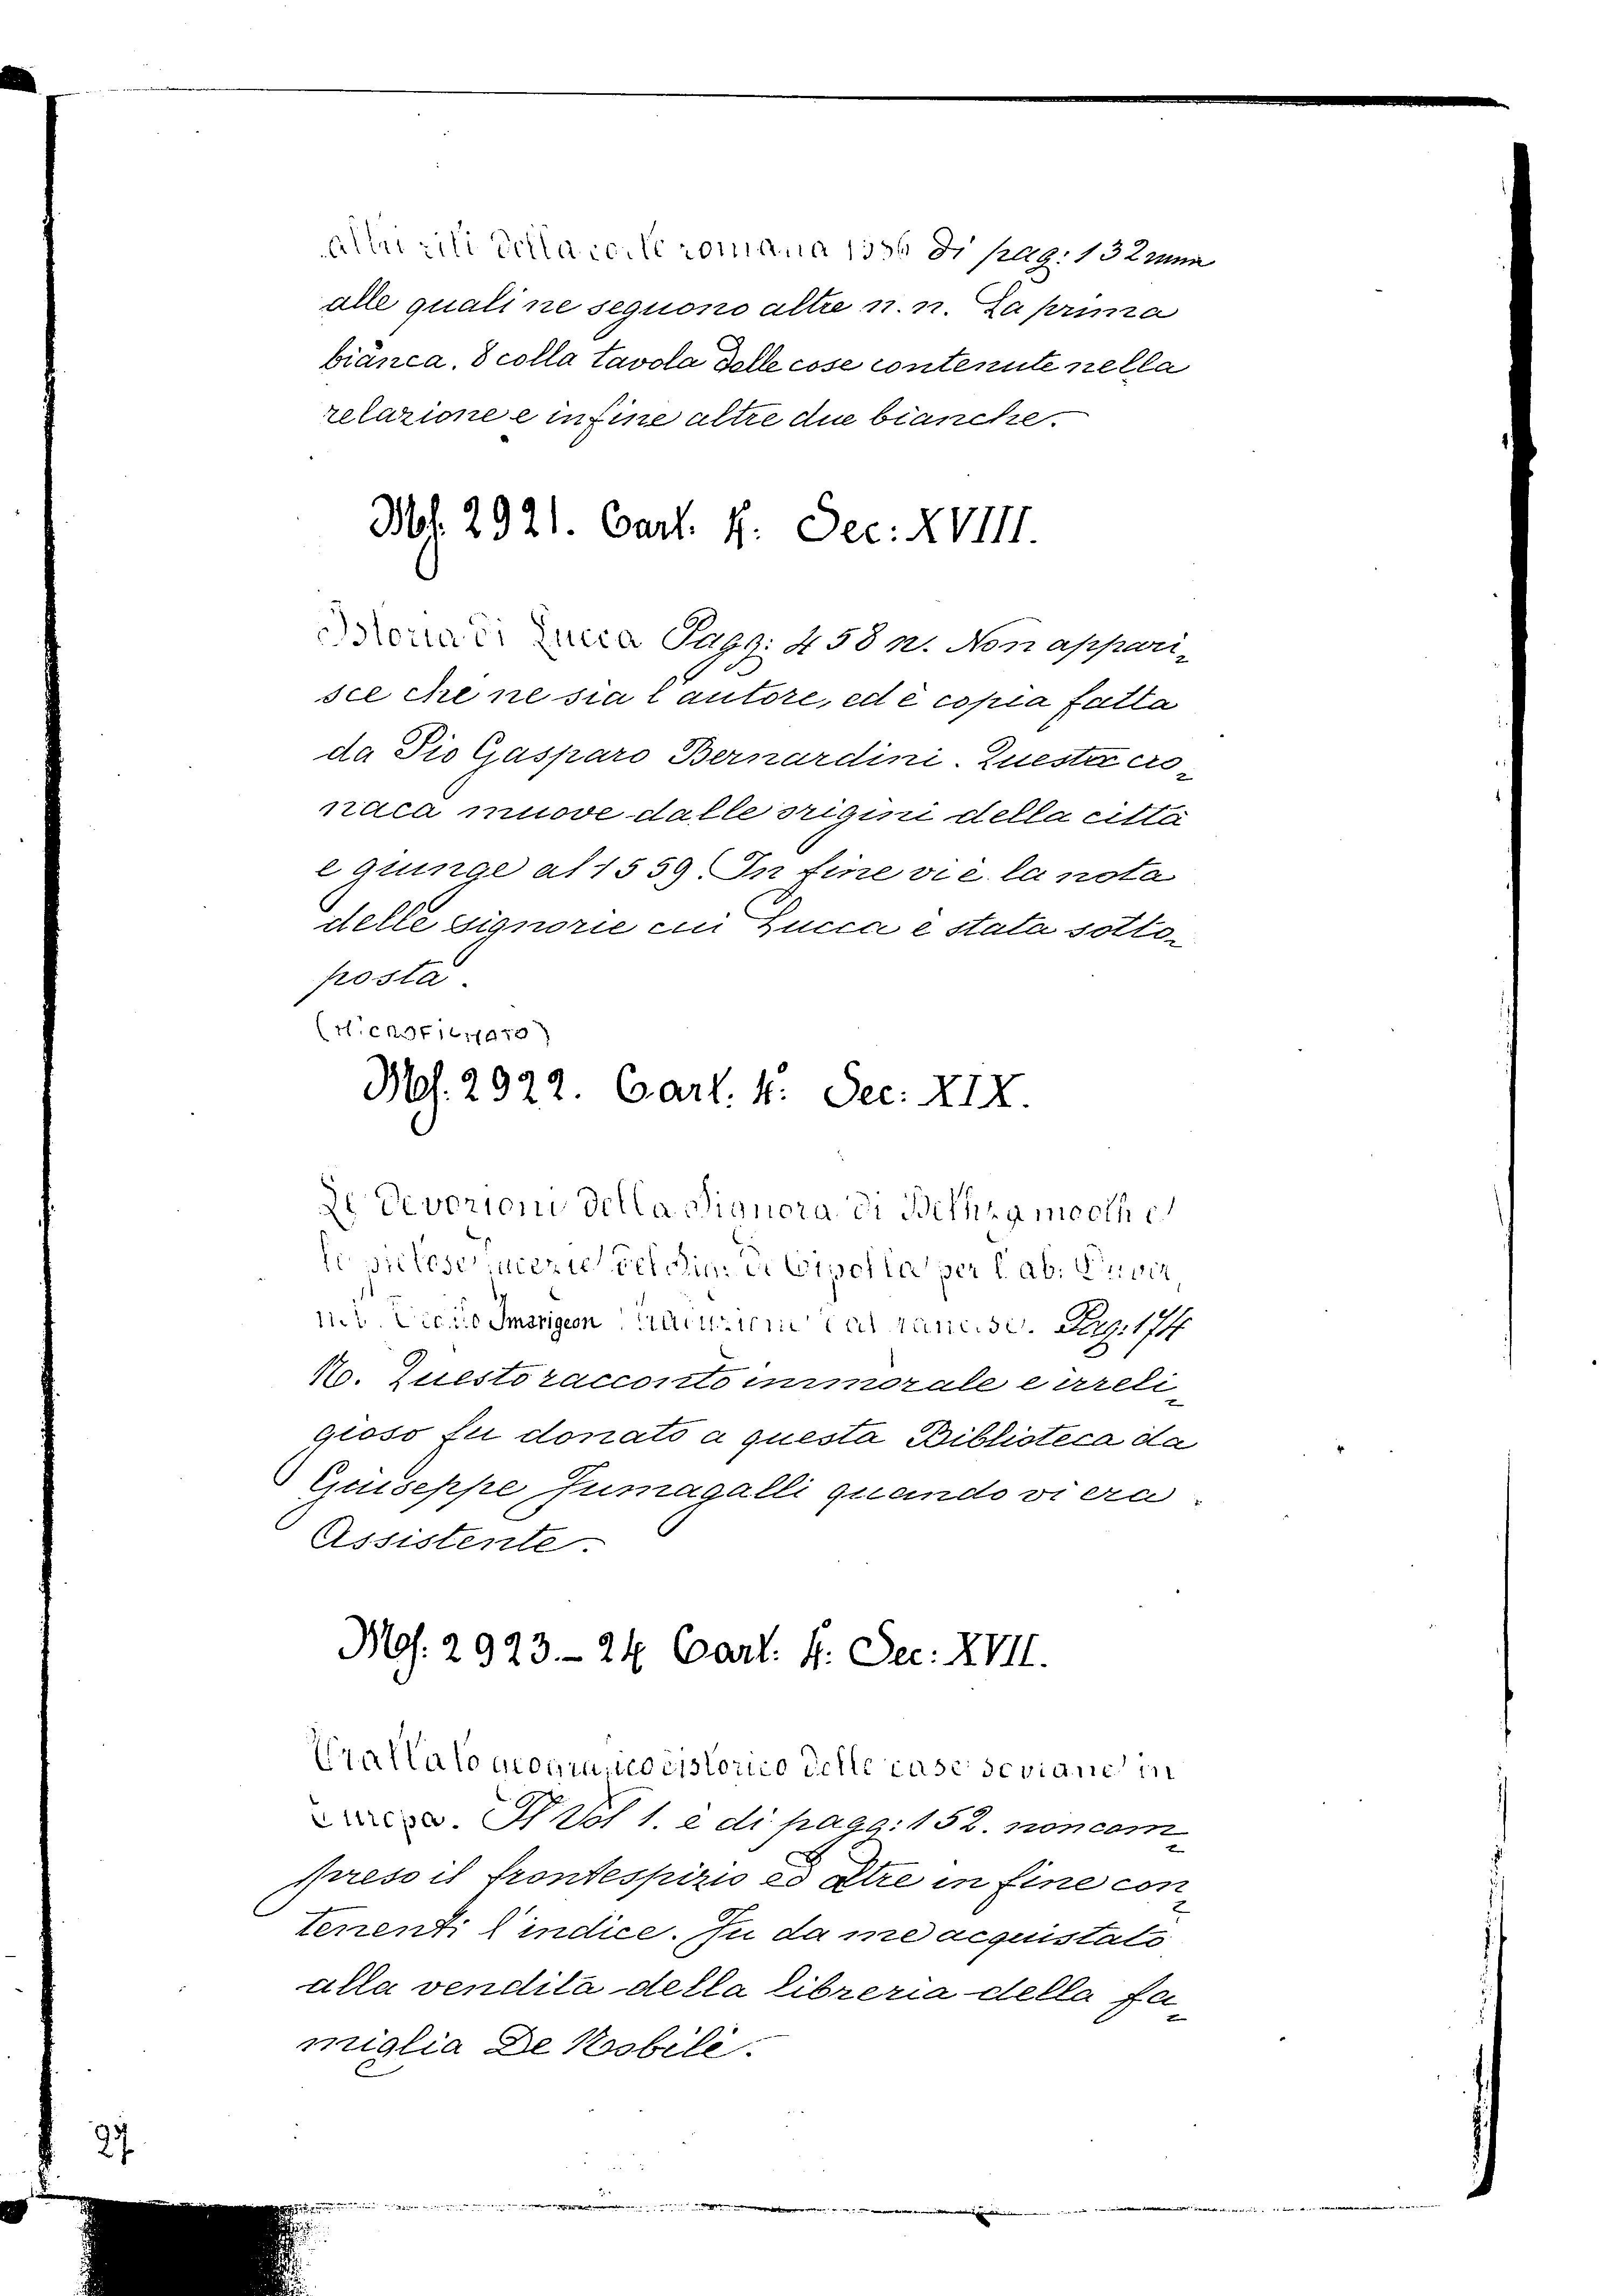 altri riti della corte romana 1586 di pag: 132 num
alle quali ne seguono altre n. n. La prima
bianca, 8 colla tavola delle cose contenute nella
relazione e in fine altre due bianche.
Ms. 2921. Cart. 4. Sec: XVIII.
Istoria di Lucca Pagg: 458 n. Non appari-
sce chi ne sia l'autore, ed è copia fatta
da Pio Gasparo Bernardini. Questa cro-
naca muove dalle origini della città
e giunge al 1559. In fine vi è la nota
delle signorie cui Lucca è stata sotto-
posta.
(Microfilmato)
Ms. 2922. Cart. 4. Sec: XIX.
Le devozioni della Signora di
le pietose del Sig: di per l'ab:
Imarigeon Traduzione dal francese. Pag: 174
N. Questo racconto immorale e irreli-
gioso fu donato a questa Biblioteca da
Giuseppe Fumagalli quando vi era
Assistente.
Ms. 2923-24 Cart: 4. Sec: XVII.
Trattato istorico delle case sovrane in
Europa. Il Vol 1. è di pagg: 152. non com-
preso il frontespizio ed altre in fine con-
tenenti l'indice. Fu da me acquistato
alla vendita della libreria della fa-
miglia De Nobili.
27